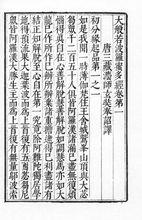 大般若波羅蜜多經卷第一
唐三藏法師玄奘奉 詔譯
初分緣起品第一之一
如是我聞一時薄伽梵住王舍城鷲峯山頂與大苾
芻眾千二百五十人俱皆阿羅漢諸漏已盡無復煩
惱得真自在心善解脫慧善解脫如調慧馬亦如大
龍已作所作已辦所辦棄諸重擔逮得己利盡諸有
結正知解脫至心自在第一究竟除阿難陀獨居學
地得預流果大迦葉波而為上首復有五百苾芻尼
眾皆阿羅漢大勝生主而為上首復有無量鄔波索